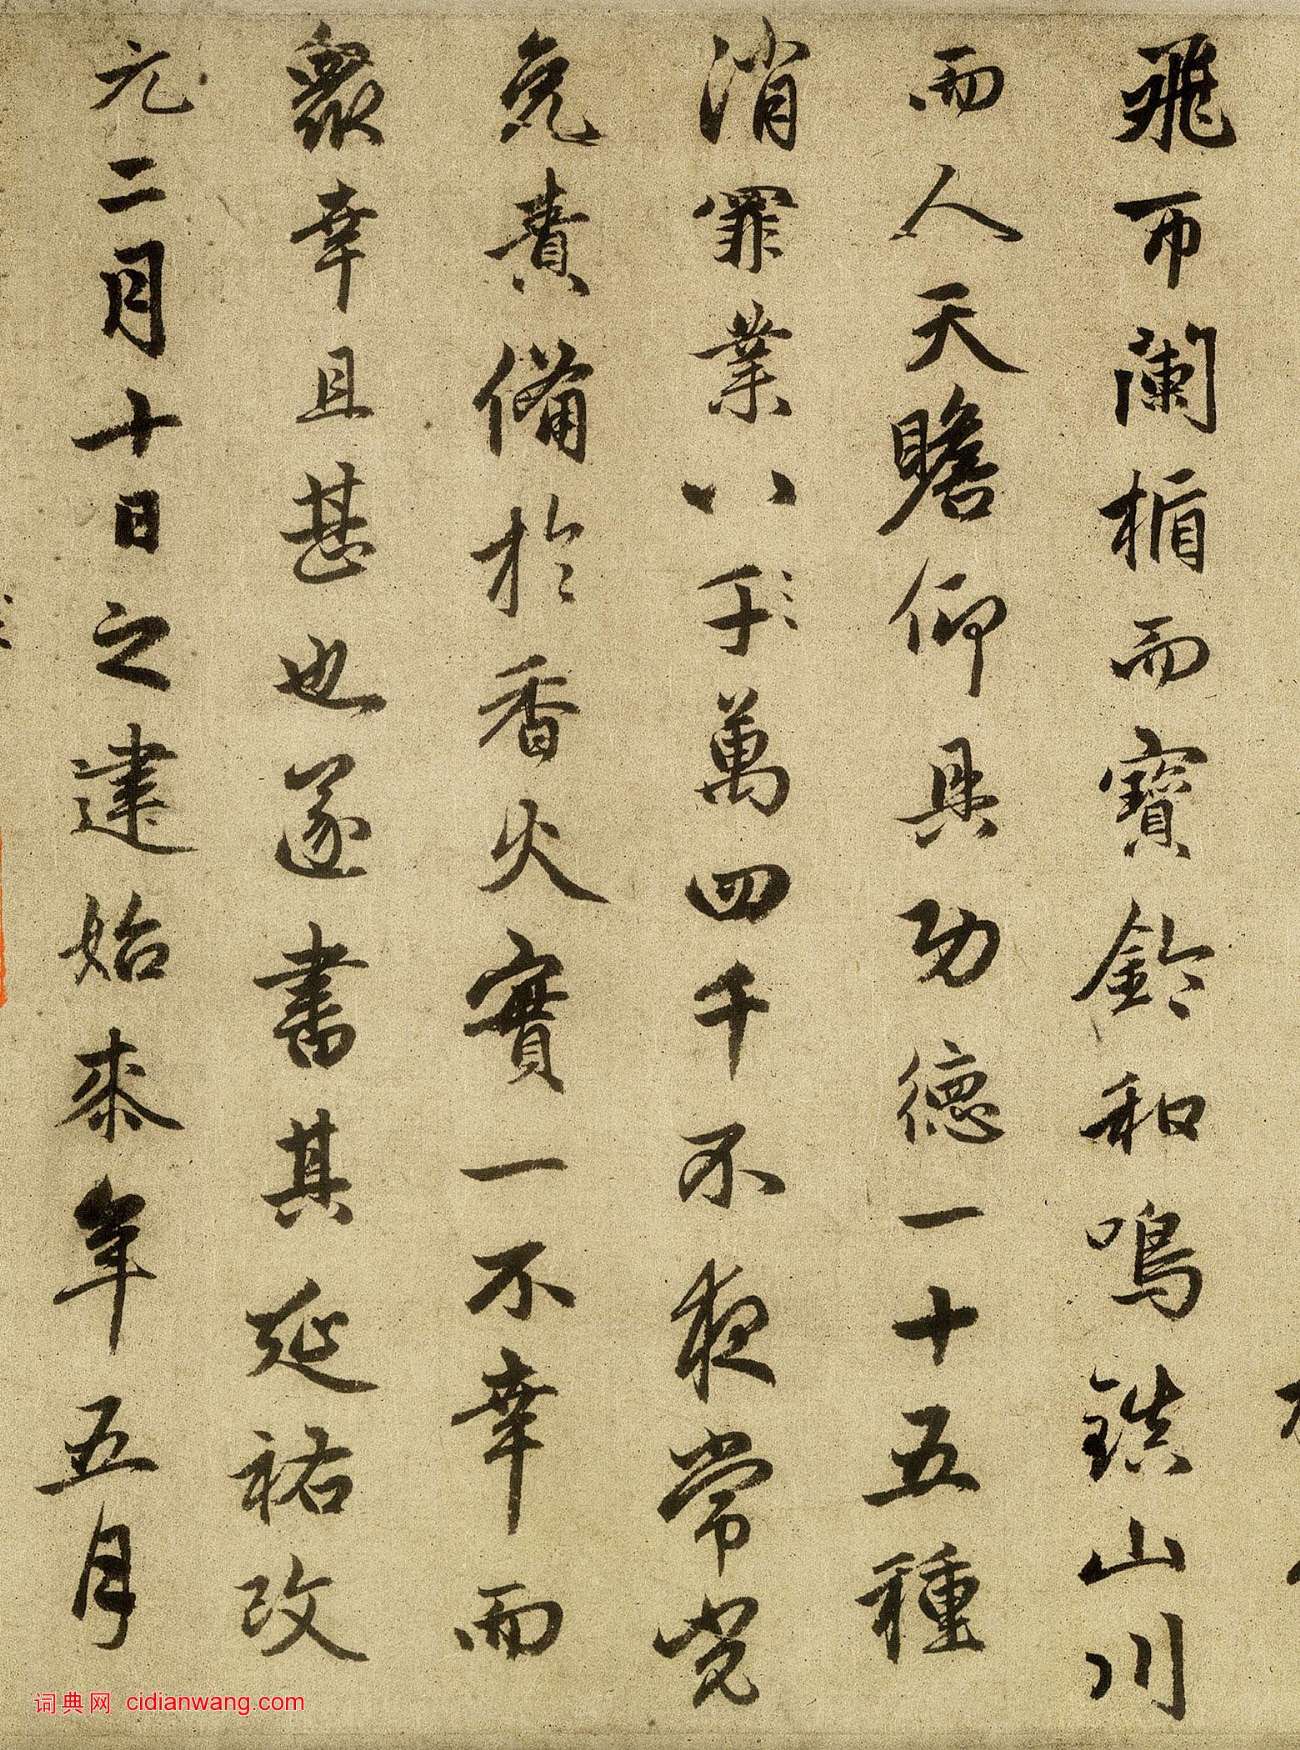 飛帀闌楯而寶鈴和鳴鎮山川
而人天瞻仰具功德一十五種
消罪業八千萬四千不夜常光
免責備於香火實一不幸而
眾幸且甚也遂書其延祐改
元二月十日之建始來年五月
词典网 cidianwang.com